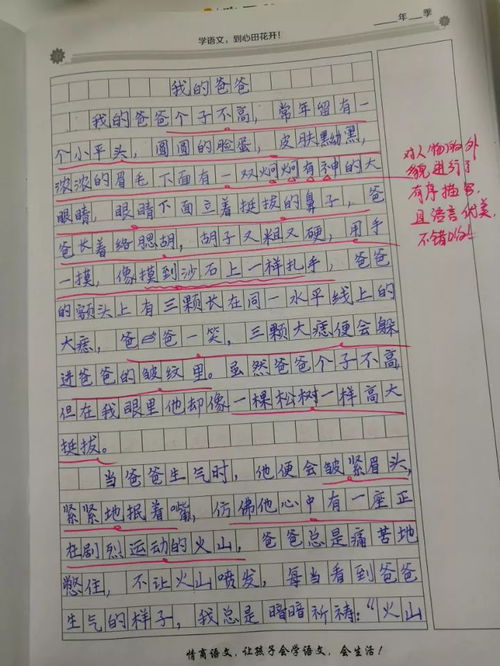 学语文，到心田花开！
年 季
我的爸爸
我的爸爸个子不高，常年留有一
个小平头，圆圆的脸蛋，皮肤黝黑，
淡淡的眉毛下面有一双炯炯有神的大
眼睛，眼睛下面立着挺拔的鼻子，爸
爸长着络腮胡，胡子又粗又硬，用手
一摸，像摸到沙石上一样扎手，爸爸
的额头上有三颗长在同一水平线上的
大痣，爸爸一笑，三颗大痣便会躲
进爸爸的皱纹里。虽然爸爸个子不高
但在我眼里他却像一棵松树一样高大
挺拔。
当爸爸生气时，他便会皱紧眉头，
紧紧地抿着嘴，仿佛他心中有一座正
在剧烈运动的火山，爸爸总是痛苦地
憋住，不让火山喷发，每当看到爸爸
生气的样子，我总是暗暗祈祷：“火山
对人物的外
貌进行了
有序描写，
且语言优美，
不错哦！
情商语文，让孩子会学语文，会生活！